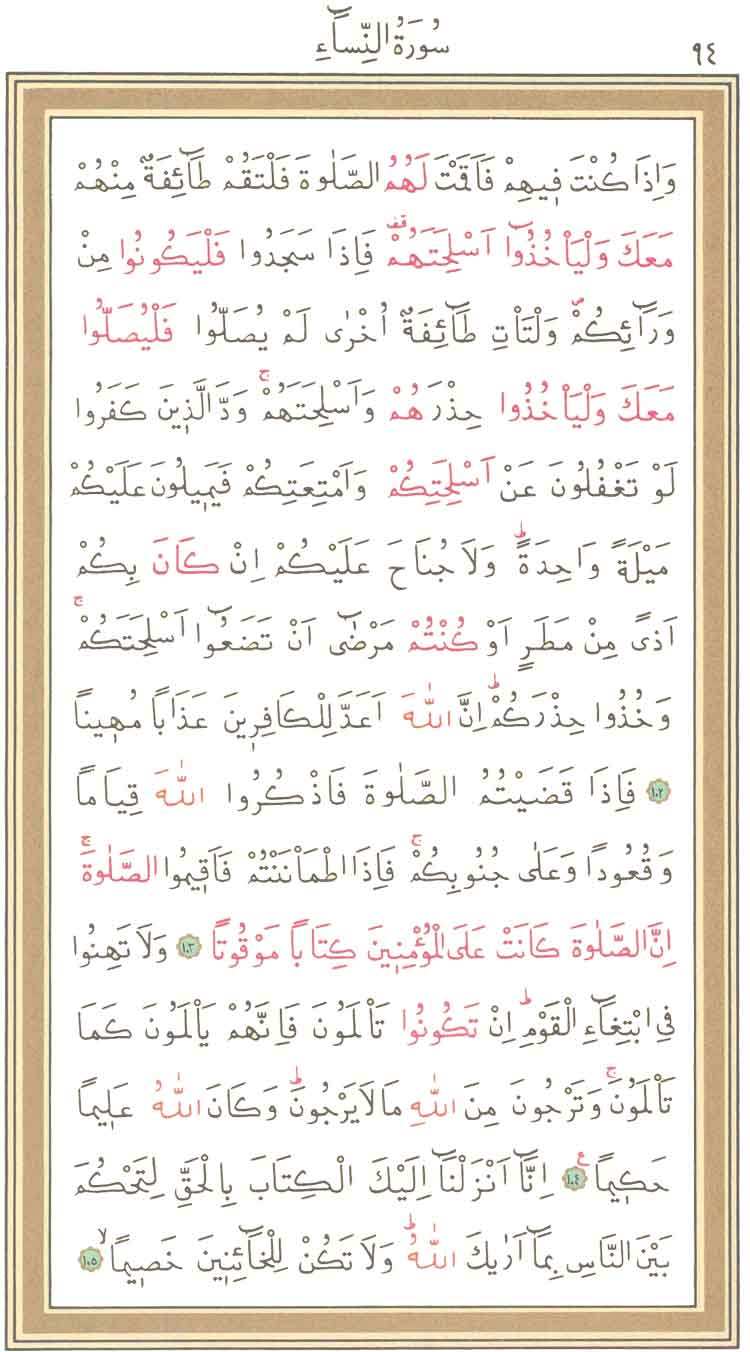 ٩٤
سُورَةُ النِّسَٓاءِ
وَاِذَا كُنْتَ فٖيهِمْ فَاَقَمْتَ لَهُمُ الصَّلٰوةَ فَلْتَقُمْ طَٓائِفَةٌ مِنْهُمْ
مَعَكَ وَلْيَأْخُذُٓوا اَسْلِحَتَهُمْ۠ فَاِذَا سَجَدُوا فَلْيَكُونُوا مِنْ
وَرَٓائِكُمْۖ وَلْتَأْتِ طَٓائِفَةٌ اُخْرٰى لَمْ يُصَلُّوا فَلْيُصَلُّوا
مَعَكَ وَلْيَأْخُذُوا حِذْرَهُمْ وَاَسْلِحَتَهُمْۚ وَدَّ الَّذٖينَ كَفَرُوا
لَوْ تَغْفُلُونَ عَنْ اَسْلِحَتِكُمْ وَاَمْتِعَتِكُمْ فَيَمٖيلُونَ عَلَيْكُمْ
مَيْلَةً وَاحِدَةًؕ وَلَا جُنَاحَ عَلَيْكُمْ اِنْ كَانَ بِكُمْ
اَذًى مِنْ مَطَرٍ اَوْ كُنْتُمْ مَرْضٰٓى اَنْ تَضَعُٓوا اَسْلِحَتَكُمْۚ
وَخُذُوا حِذْرَكُمْؕ اِنَّ اللّٰهَ اَعَدَّ لِلْكَافِرٖينَ عَذَابًا مُهٖينًا
﴿١٠٢﴾ فَاِذَا قَضَيْتُمُ الصَّلٰوةَ فَاذْكُرُوا اللّٰهَ قِيَامًا
وَقُعُودًا وَعَلٰى جُنُوبِكُمْۚ فَاِذَا اطْمَأْنَنْتُمْ فَاَقٖيمُوا الصَّلٰوةَۚ
اِنَّ الصَّلٰوةَ كَانَتْ عَلَى الْمُؤْمِنٖينَ كِتَابًا مَوْقُوتًا ﴿١٠٣﴾ وَلَا تَهِنُوا
فِي ابْتِغَٓاءِ الْقَوْمِؕ اِنْ تَكُونُوا تَأْلَمُونَ فَاِنَّهُمْ يَأْلَمُونَ كَمَا
تَأْلَمُونَۚ وَتَرْجُونَ مِنَ اللّٰهِ مَا لَا يَرْجُونَؕ وَكَانَ اللّٰهُ عَلٖيمًا
حَكٖيمًاࣖ ﴿١٠٤﴾ اِنَّٓا اَنْزَلْنَٓا اِلَيْكَ الْكِتَابَ بِالْحَقِّ لِتَحْكُمَ
بَيْنَ النَّاسِ بِمَٓا اَرٰيكَ اللّٰهُؕ وَلَا تَكُنْ لِلْخَٓائِنٖينَ خَصٖيمًاۙ ﴿١٠٥﴾